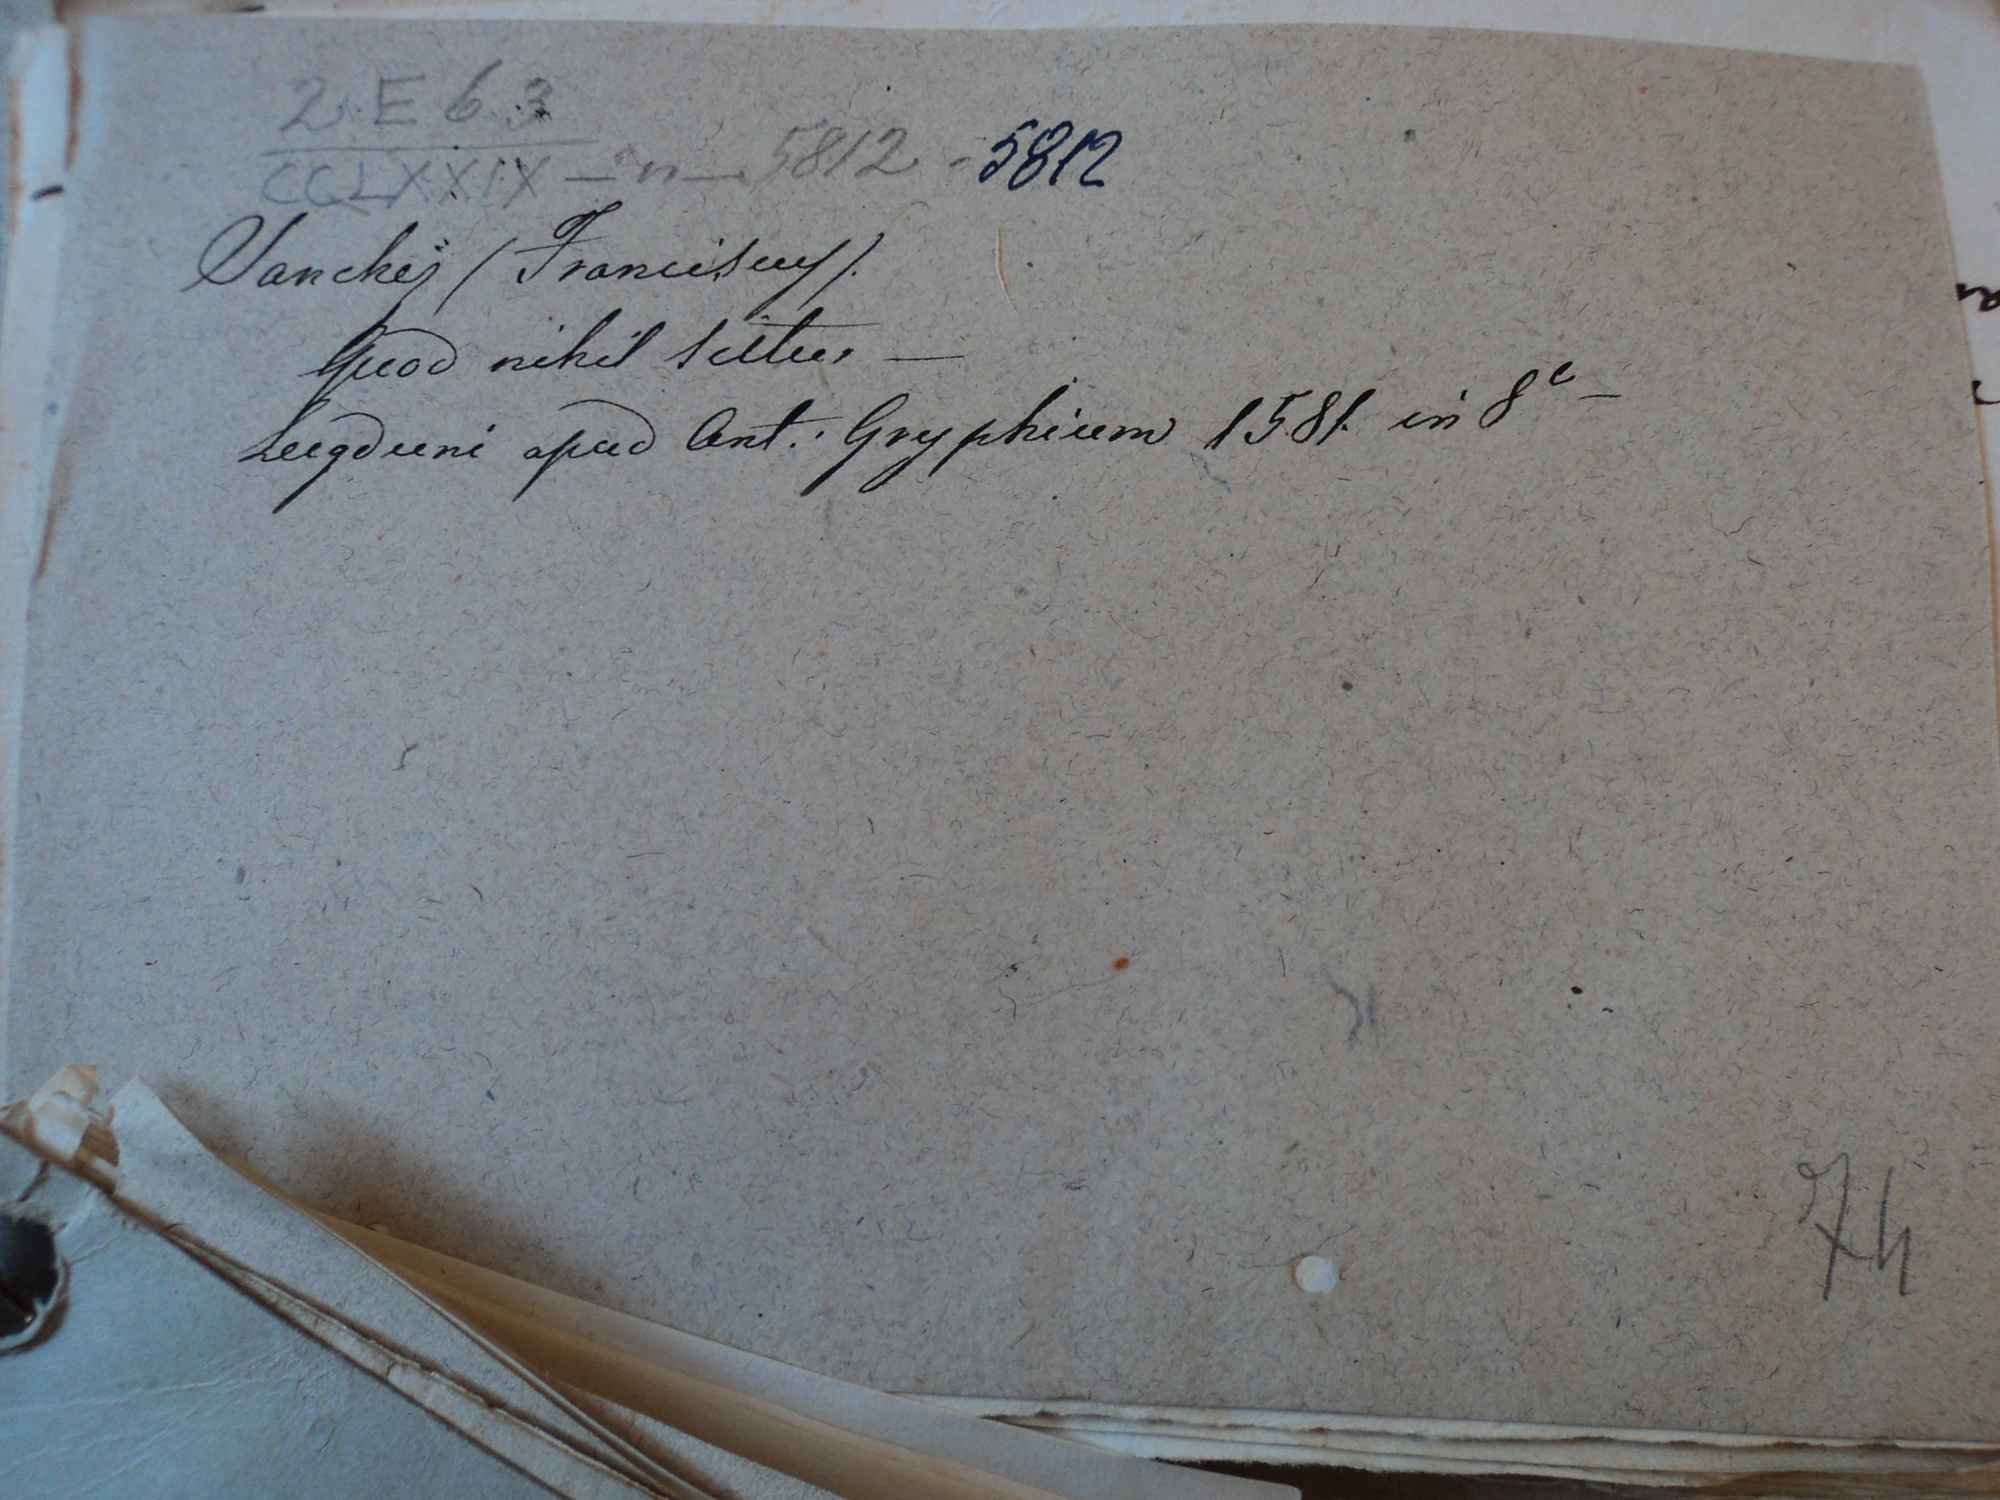 2 E 6 3
CCLXXIX — n — 5812 - 5812
Sanchez (Franciscus).
Quod nihil scitur —
Lugduni apud Ant. Gryphium 1581. in 8º —
74